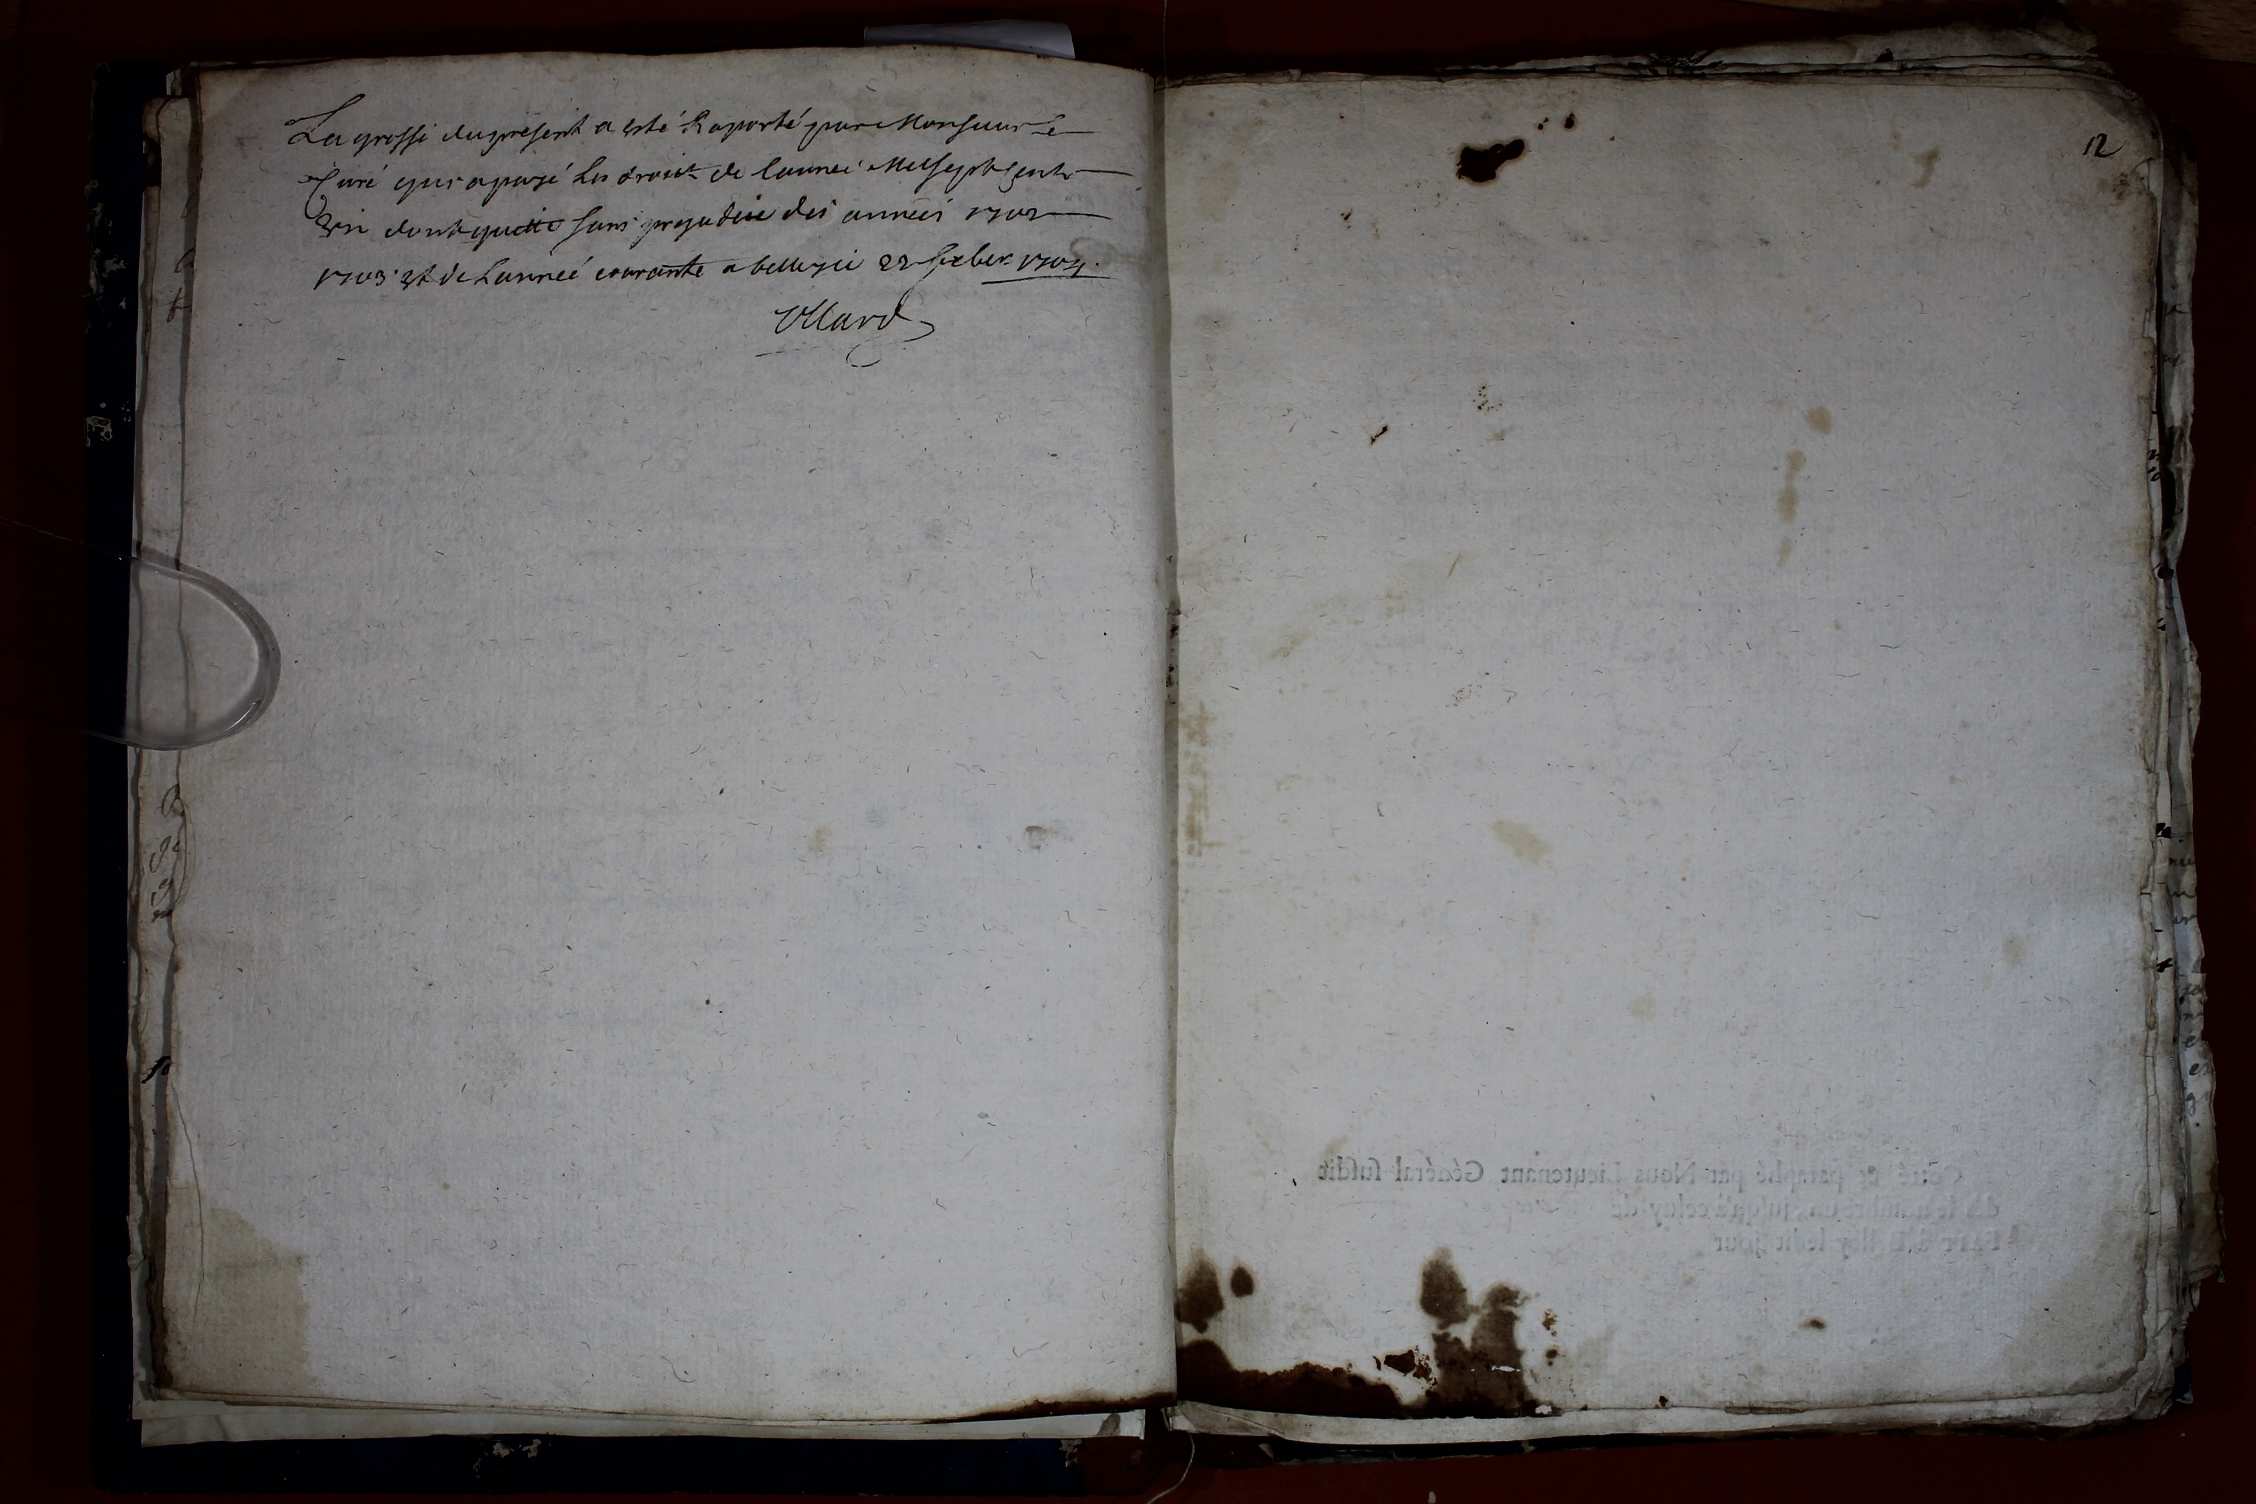 La grosse du present a esté Raporté par Monsieur le
Curé qui a payé les droits de l'année Mil sept Cents
un dont quitte sans prejudice des années 1702
1703 et de L'année courante a belley ce 22 1704.
12
Cotté & paraphé par Nous Lieutenant Général susdit
jusqu'à celuy de
Fait à Belley ledit jour